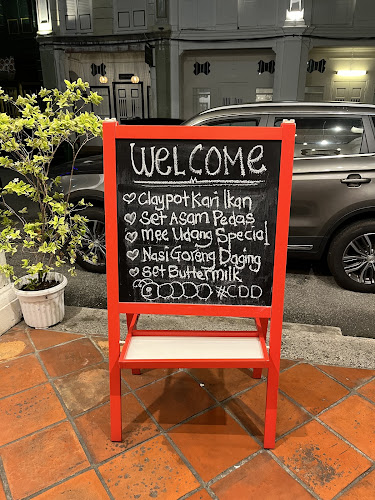 WELCOME
Claypot Kari Ikan
Set Asam Pedas
mee Udang Special
Nasi Goreng Daging
Set Buttermilk
#CDD